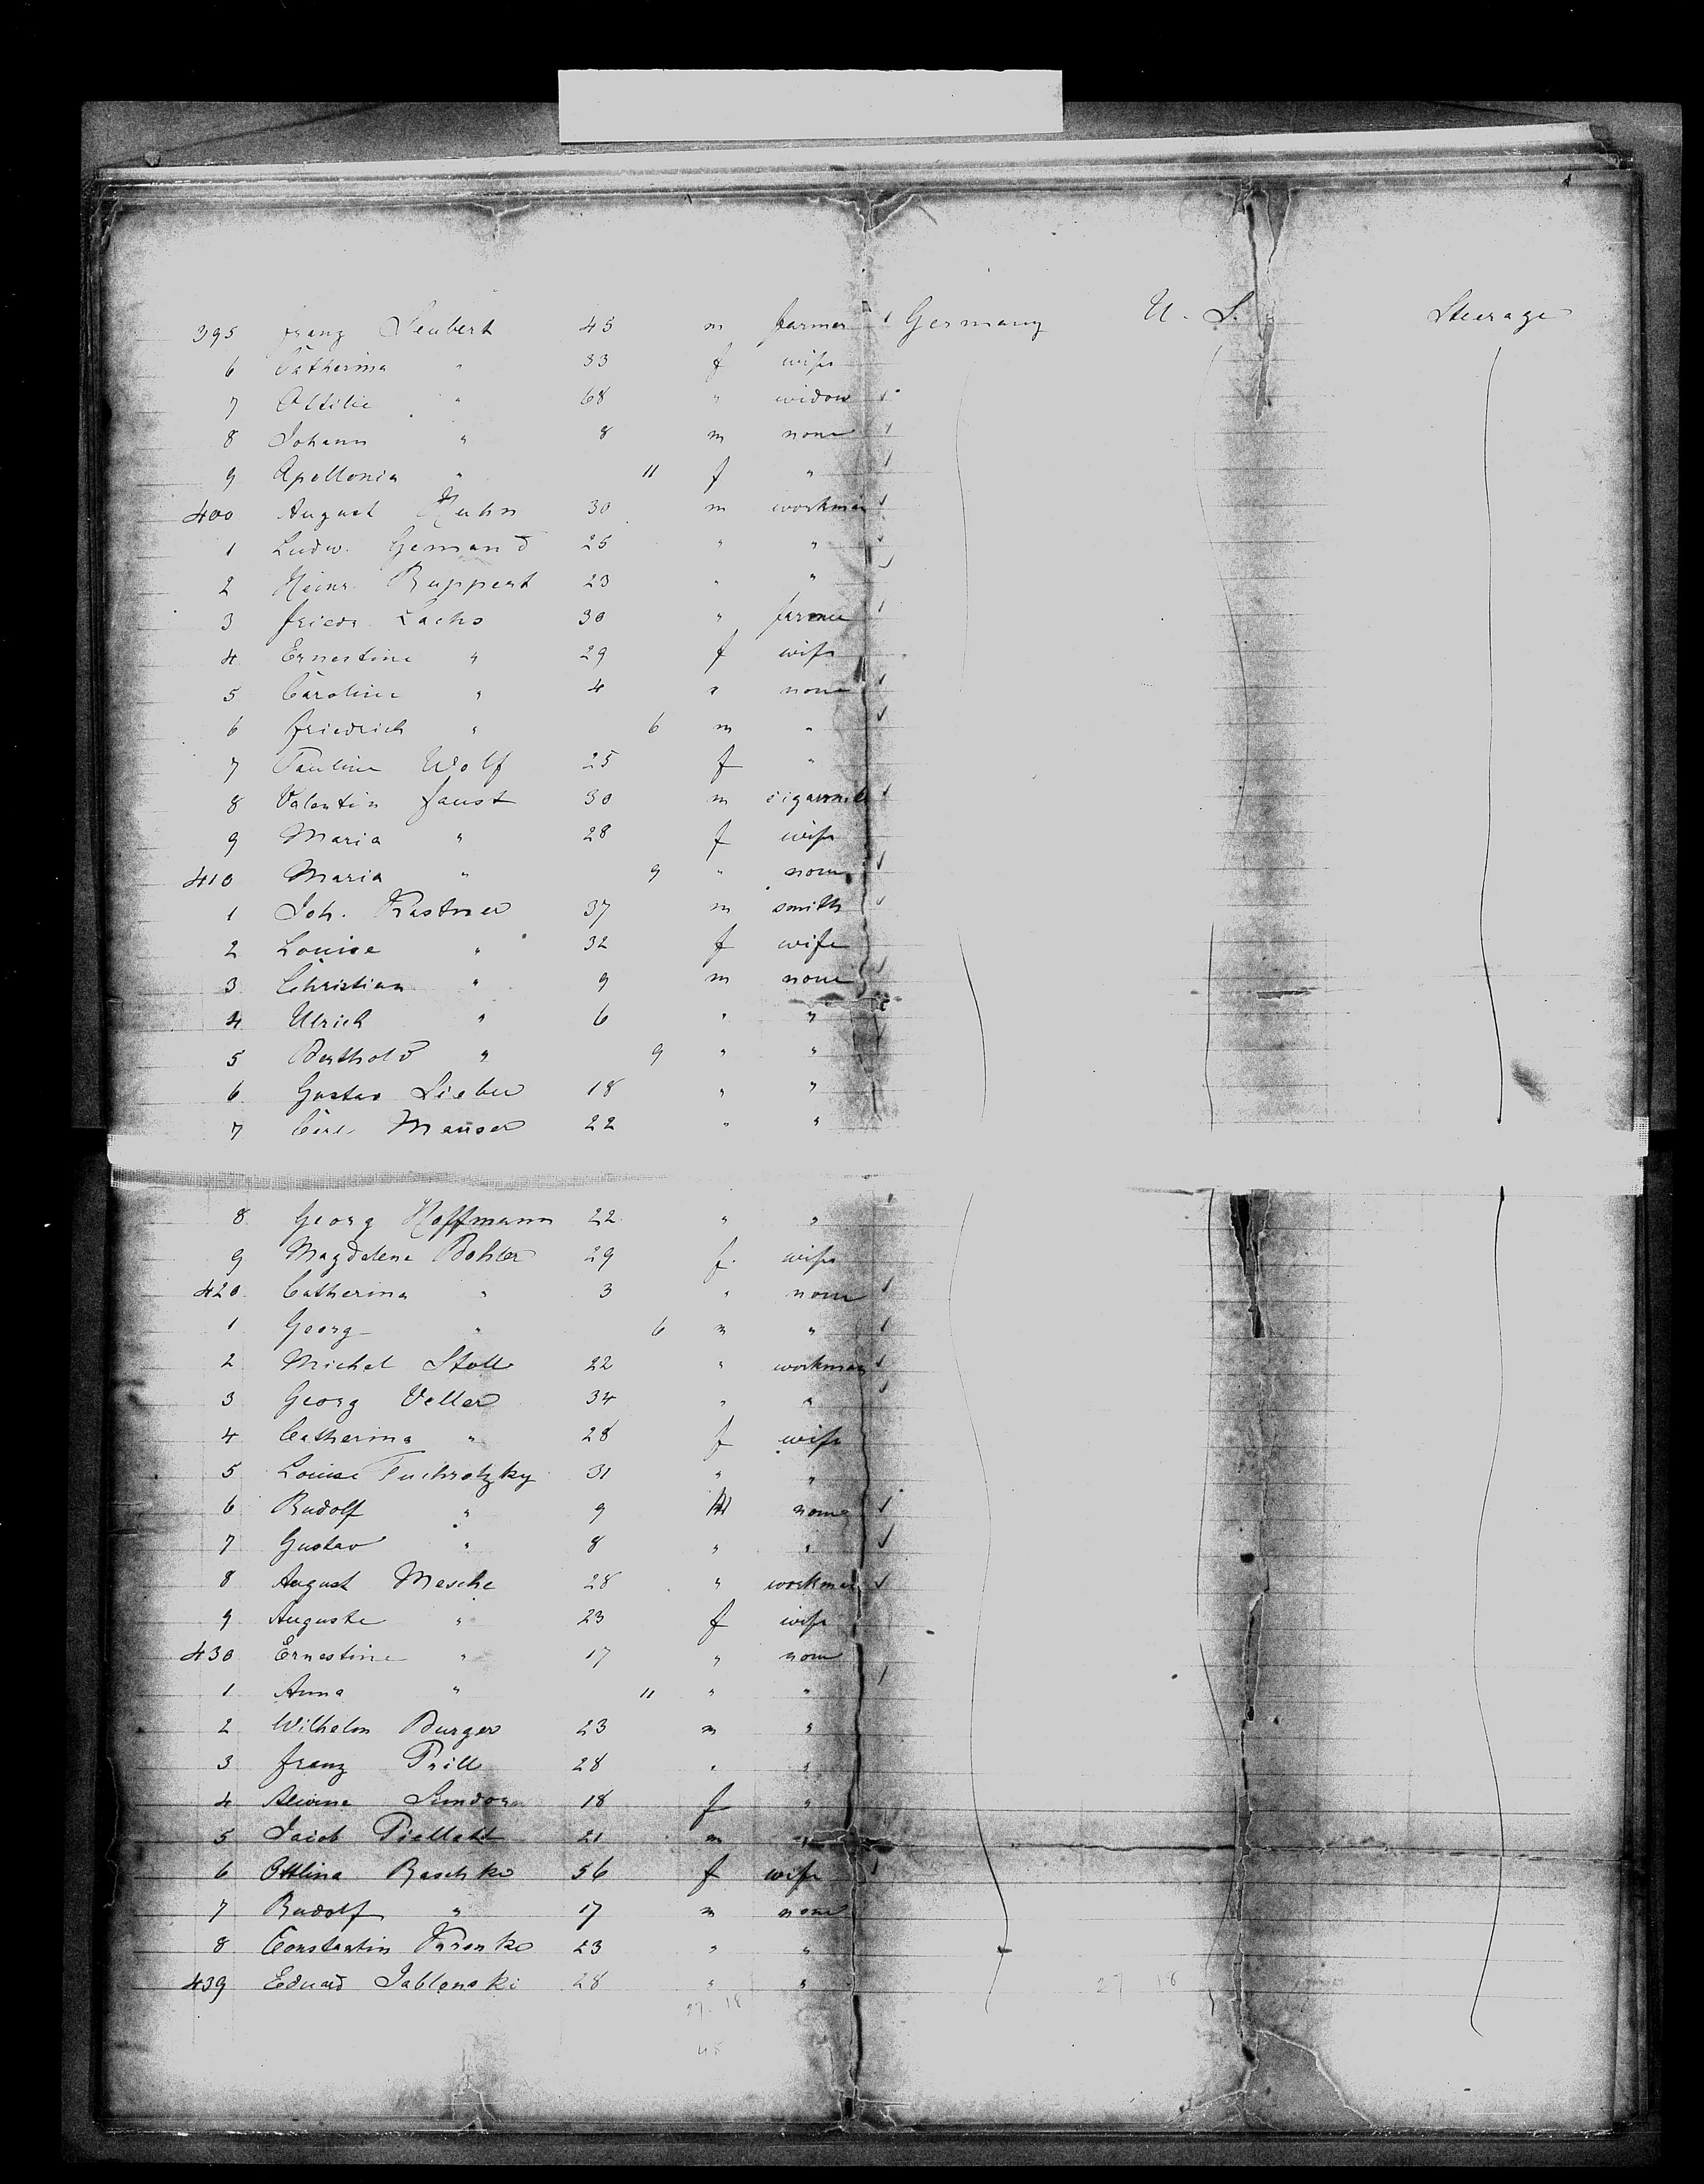 395 Franz Seubert 45 m farmer Germany U. S. Steerage
6 Catherina " 33 f wife
7 Ottilie " 68 " widow
8 Johann " 8 m none
9 Apollonia " 11 f "
400 August Kuhn 30 m workman
1 Ludw. Gemand 25 " "
2 Heinr. Ruppert 23 " "
3 Friedr. Lachs 30 " farmer
4 Ernestine " 29 f wife
5 Caroline " 4 " none
6 Friedrich " 6 m "
7 Pauline Wolf 25 f "
8 Valentin Faust 30 m
9 Maria " 28 f wife
410 Maria " 9 " none
1 Joh. Kastner 37 m smith
2 Louise " 32 f wife
3 Christian " 9 m none
4 Ulrich " 6 " "
5 Berthold " 9 " "
6 Gustav Lieber 18 " "
7 Carl Mauser 22 " "
8 Georg Hoffmann 22 " "
9 Magdalena Bohler 29 f. wife
420 Catherina " 3 " none
1 Georg " 6 m "
2 Michel Stoll 22 " workman
3 Georg Veller 34 " "
4 Catherina " 28 f wife
5 Louise 31 " "
6 Rudolf " 9 m none
7 Gustav " 8 " "
8 August Mesche 28 " workman
9 Auguste " 23 f wife
430 Ernestine " 17 " none
1 Anna " 11 " "
2 Wilhelm Burger 23 m "
3 Franz Prill 28 " "
4 Alwine 18 f "
5 Jacob 21 m "
6 Ottlina Raschke 56 f wife
7 Rudolf " 17 m none
8 Constantin 23 " "
439 Eduard Jablonski 28 " "
27 18
27. 18
45